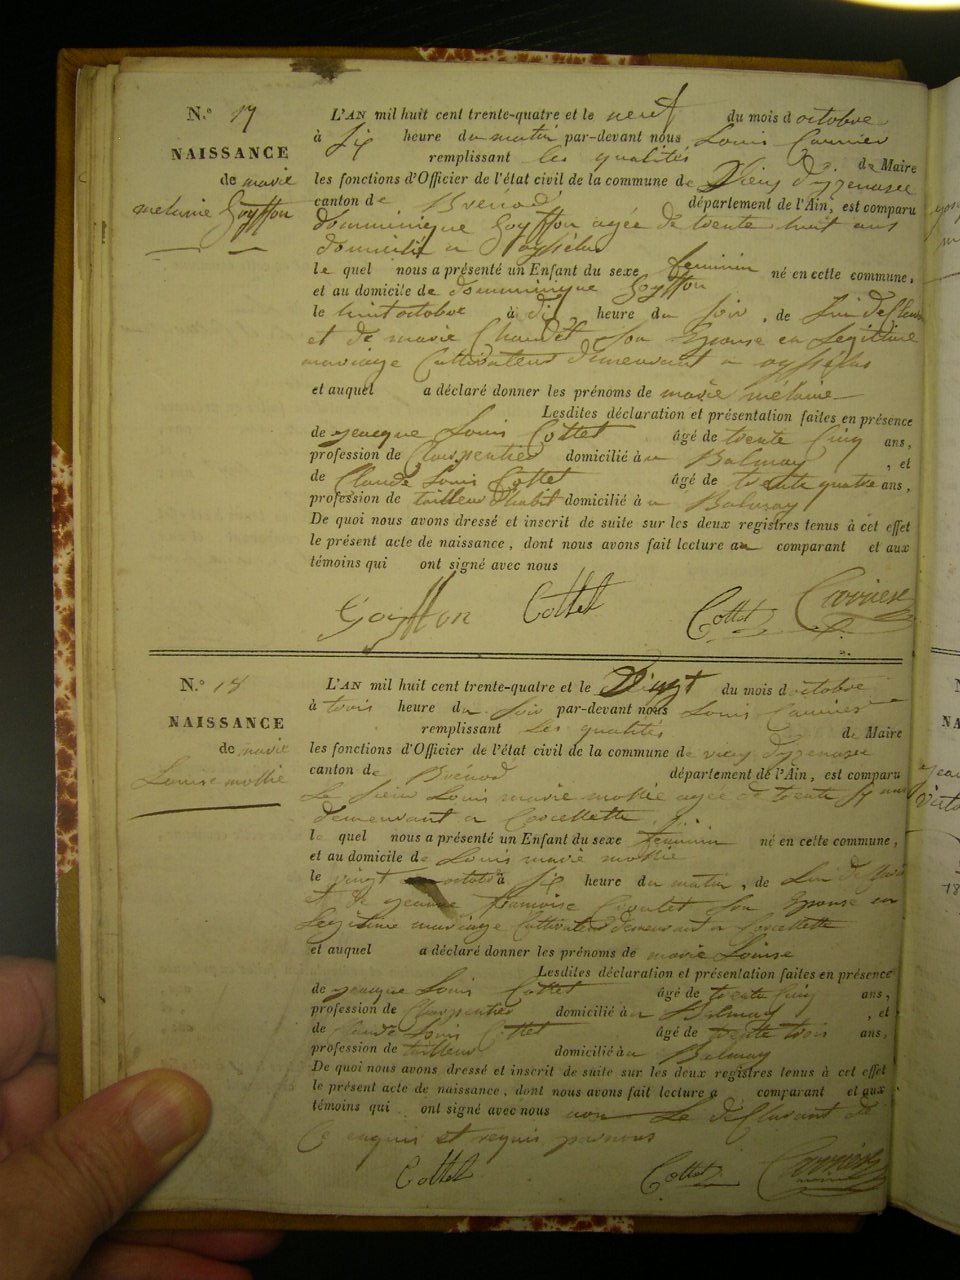 N.º 17
NAISSANCE
de marie
mélanie Goyffon
L'AN mil huit cent trente-quatre et le neuf du mois d octobre
à Six heure du matin par-devant nous Louis Carrier
remplissant les qualités de Maire
les fonctions d'Officier de l'état civil de la commune de Vieu dyzenave
canton de Brenod département de l'Ain, est comparu
domminique Goyffon agée de trente huit ans
domicilié a oyssélas
le quel nous a présenté un Enfant du sexe feminin né en cette commune,
et au domicile de domminique Goyffon
le huit octobre à dix heure du soir, de
et de marie Chaudet son Epouse en Legitime
mariage Cultivateur demeurant a oyssélas
et auquel a déclaré donner les prénoms de marie mélanie
Lesdites déclaration et présentation faites en présence
de jeacque Louis Cottet âgé de trente Cinq ans,
profession de Charpentier domicilié à a Balmay, et
de Claude Louis Cottet âgé de trente quatre ans,
profession de tailleur d'habit domicilié à a Balmay
De quoi nous avons dressé et inscrit de suite sur les deux registres tenus à cet effet
le présent acte de naissance, dont nous avons fait lecture au comparant et aux
témoins qui ont signé avec nous
Goyffon Cottet Cottet Carrier
N.º 18
NAISSANCE
de marie
Louise mollie
L'AN mil huit cent trente-quatre et le Vingt du mois d octobre
à trois heure du Soir par-devant nous Louis Carrier
remplissant Les qualités de Maire
les fonctions d'Officier de l'état civil de la commune de vieu dyzenave
canton de Brénod département de l'Ain, est comparu
Le sieur Louis marie mollie agée de trente ans
demeurant a Corcellette
le quel nous a présenté un Enfant du sexe feminin né en cette commune,
et au domicile de Louis marie mollie
le vingt octobre à Six heure du matin, de
et de jeanne francoise Son Epouse en
Legitime mariage Cultivateur demeurant a Corcellette
et auquel a déclaré donner les prénoms de marie Louise
Lesdites déclaration et présentation faites en présence
de jeacque Louis Cottet âgé de trente Cinq ans,
profession de Charpentier domicilié à a Balmay, et
de Claude Louis Cottet âgé de trente trois ans,
profession de tailleur domicilié à a Balmay
De quoi nous avons dressé et inscrit de suite sur les deux registres tenus à cet effet
le présent acte de naissance, dont nous avons fait lecture a comparant et aux
témoins qui ont signé avec nous non Le desclarant de
Ce enquis et requis par nous
Cottet Cottet Carrier
maire